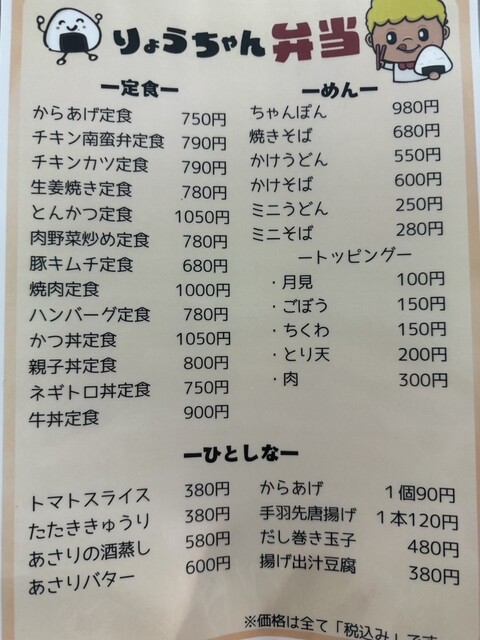 りょうちゃん弁当
ー定食ー
からあげ定食 750円
チキン南蛮弁定食 790円
チキンカツ定食 790円
生姜焼き定食 780円
とんかつ定食 1050円
肉野菜炒め定食 780円
豚キムチ定食 680円
焼肉定食 1000円
ハンバーグ定食 780円
かつ丼定食 1050円
親子丼定食 800円
ネギトロ丼定食 750円
牛丼定食 900円
ーめんー
ちゃんぽん 980円
焼きそば 680円
かけうどん 550円
かけそば 600円
ミニうどん 250円
ミニそば 280円
ートッピングー
・月見 100円
・ごぼう 150円
・ちくわ 150円
・とり天 200円
・肉 300円
ーひとしなー
トマトスライス 380円
たたききゅうり 380円
あさりの酒蒸し 580円
あさりバター 600円
からあげ 1個90円
手羽先唐揚げ 1本120円
だし巻き玉子 480円
揚げ出汁豆腐 380円
※価格は全て「税込み」です